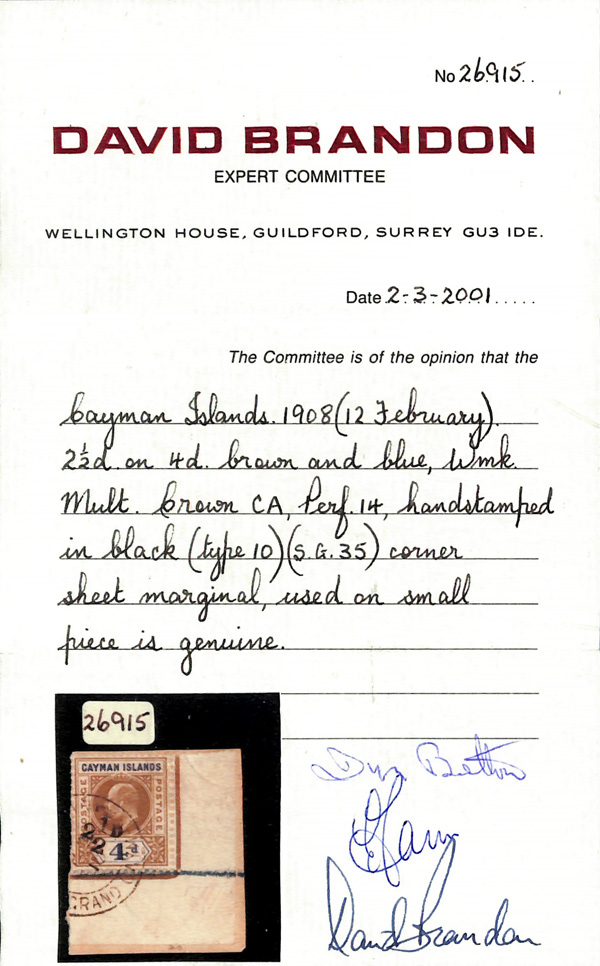 No 26915..
DAVID BRANDON
EXPERT COMMITTEE
WELLINGTON HOUSE, GUILDFORD, SURREY GU3 1DE.
Date 2-3-2001.....
The Committee is of the opinion that the
Cayman Islands. 1908 (12 February).
2½d. on 4d. brown and blue, Wmk.
Mult. Crown CA, Perf. 14, handstamped
in black (type 10) (S.G. 35) corner
sheet marginal, used on small
piece is genuine.
26915
CAYMAN ISLANDS
POSTAGE
POSTAGE
4d
GRAND
David Brandon